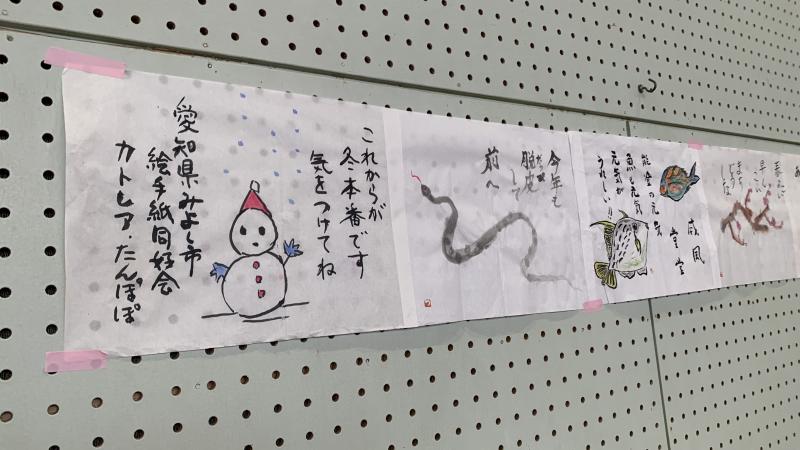 威風
堂堂
能登の元気
魚も元気
元気が
うれしい!!
今年も
脱皮
して
前へ
これからが
冬本番です
気をつけてね
愛知県みよし市
絵手紙同好会
カトレア・たんぽぽ